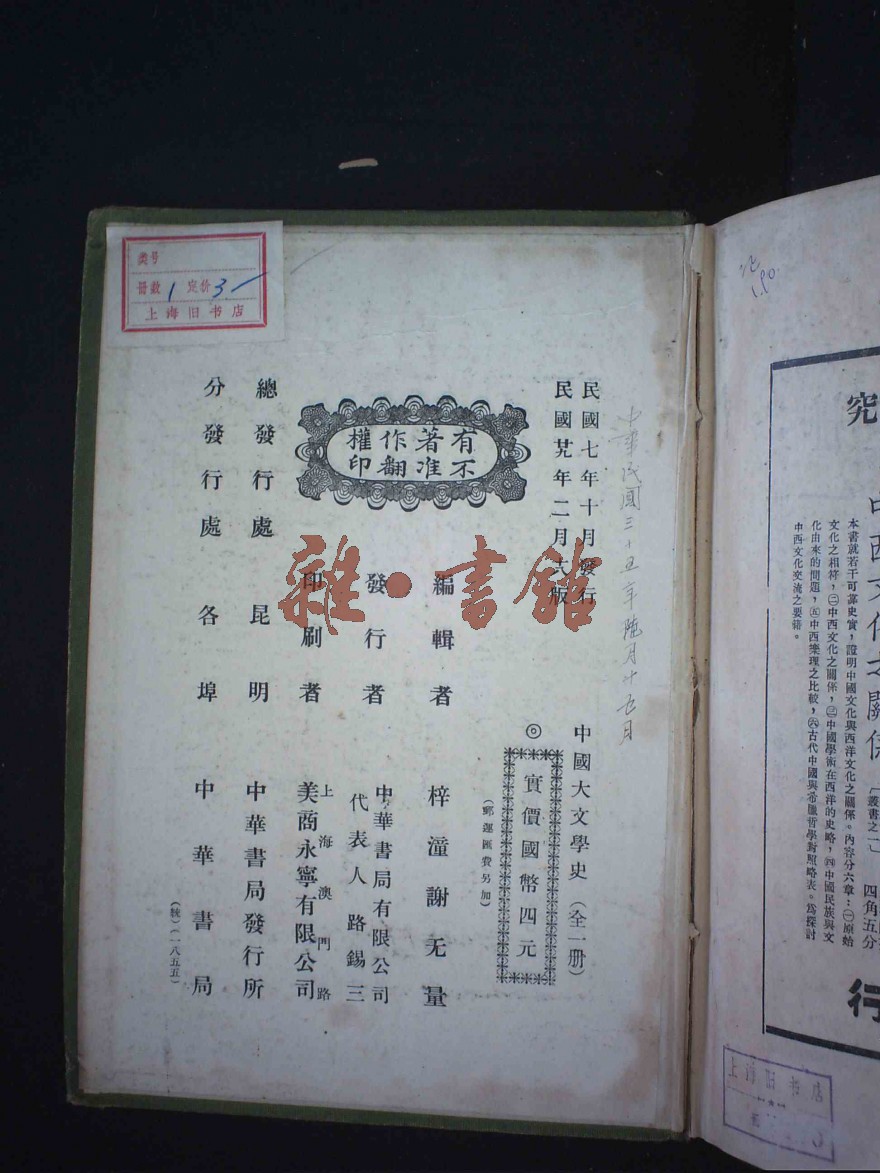 类号
册数 1 定价 3.—
上海旧书店
民國七年十月發行
民國廿九年二月六版
中華民國三十五年陸月十五日
中國大文學史（全一册）
◎實價國幣四元
（郵運匯費另加）
有著作權
不准翻印
編輯者 梓潼謝无量
發行者 中華書局有限公司
代表人路錫三
印刷者 上海澳門路
美商永寧有限公司
總發行處 昆明 中華書局發行所
分發行處 各埠 中華書局
（一八五五）
雜·書館
1.90
究
中西文化之關係
〔叢書之一〕
四角五分
本書就若干可靠史實，證明中國文化與西洋文化之關係。內容分六章：㊀原始
文化之相符，㊁中西文化之關係，㊂中國學術在西洋的史略，㊃中國民族與文
化由來的問題，㊄中西樂理之比較，㊅古代中國與希臘哲學對照略表。爲探討
中西文化交流之要籍。
行
上海旧书店